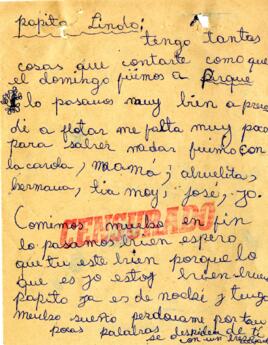 papito Lindo:
tengo tantas
cosas que contarte como que
el domingo fuimos a Pirque
lo pasamos muy bien apren
dí a flotar me falta muy poco
para saber nadar fuimos con
la carola, mamá, abuelita,
hermana, tia moy, josé, yo.
CENSURADO
Comimos mucho en fin
lo pasamos bien espero
que tu este bien porque lo
que es yo estoy bien
papito ya es de noche y tengo
mucho sueño perdoname por tan
pocas palabras se despide de ti
con un